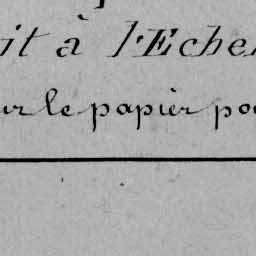 it à l'Echel
ur le papièr po